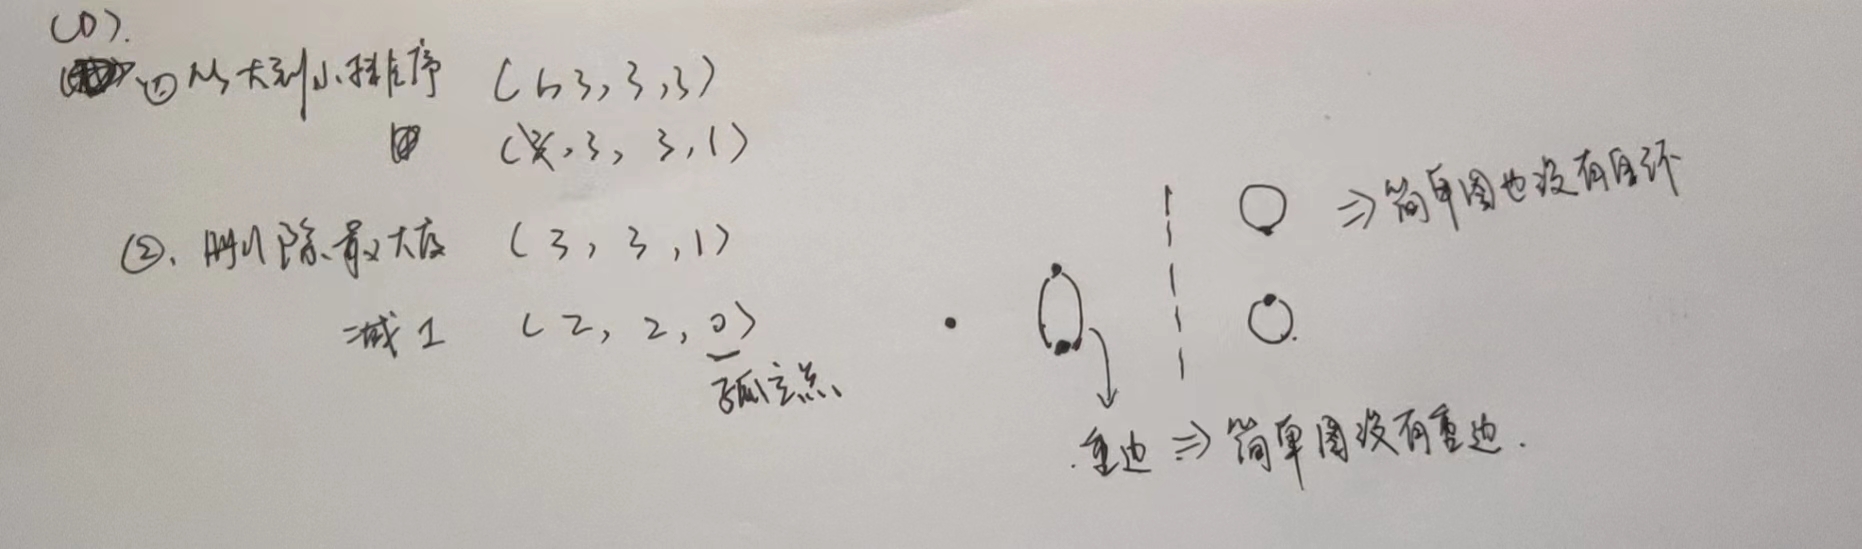 (D).
① 从大到小排序 (1,3,3,3)
(3,3,3,1)
②. 删除最大度 (3,3,1)
减1 (2,2,0)
孤立点
⇒ 简单图也没有自环
重边 ⇒ 简单图没有重边.